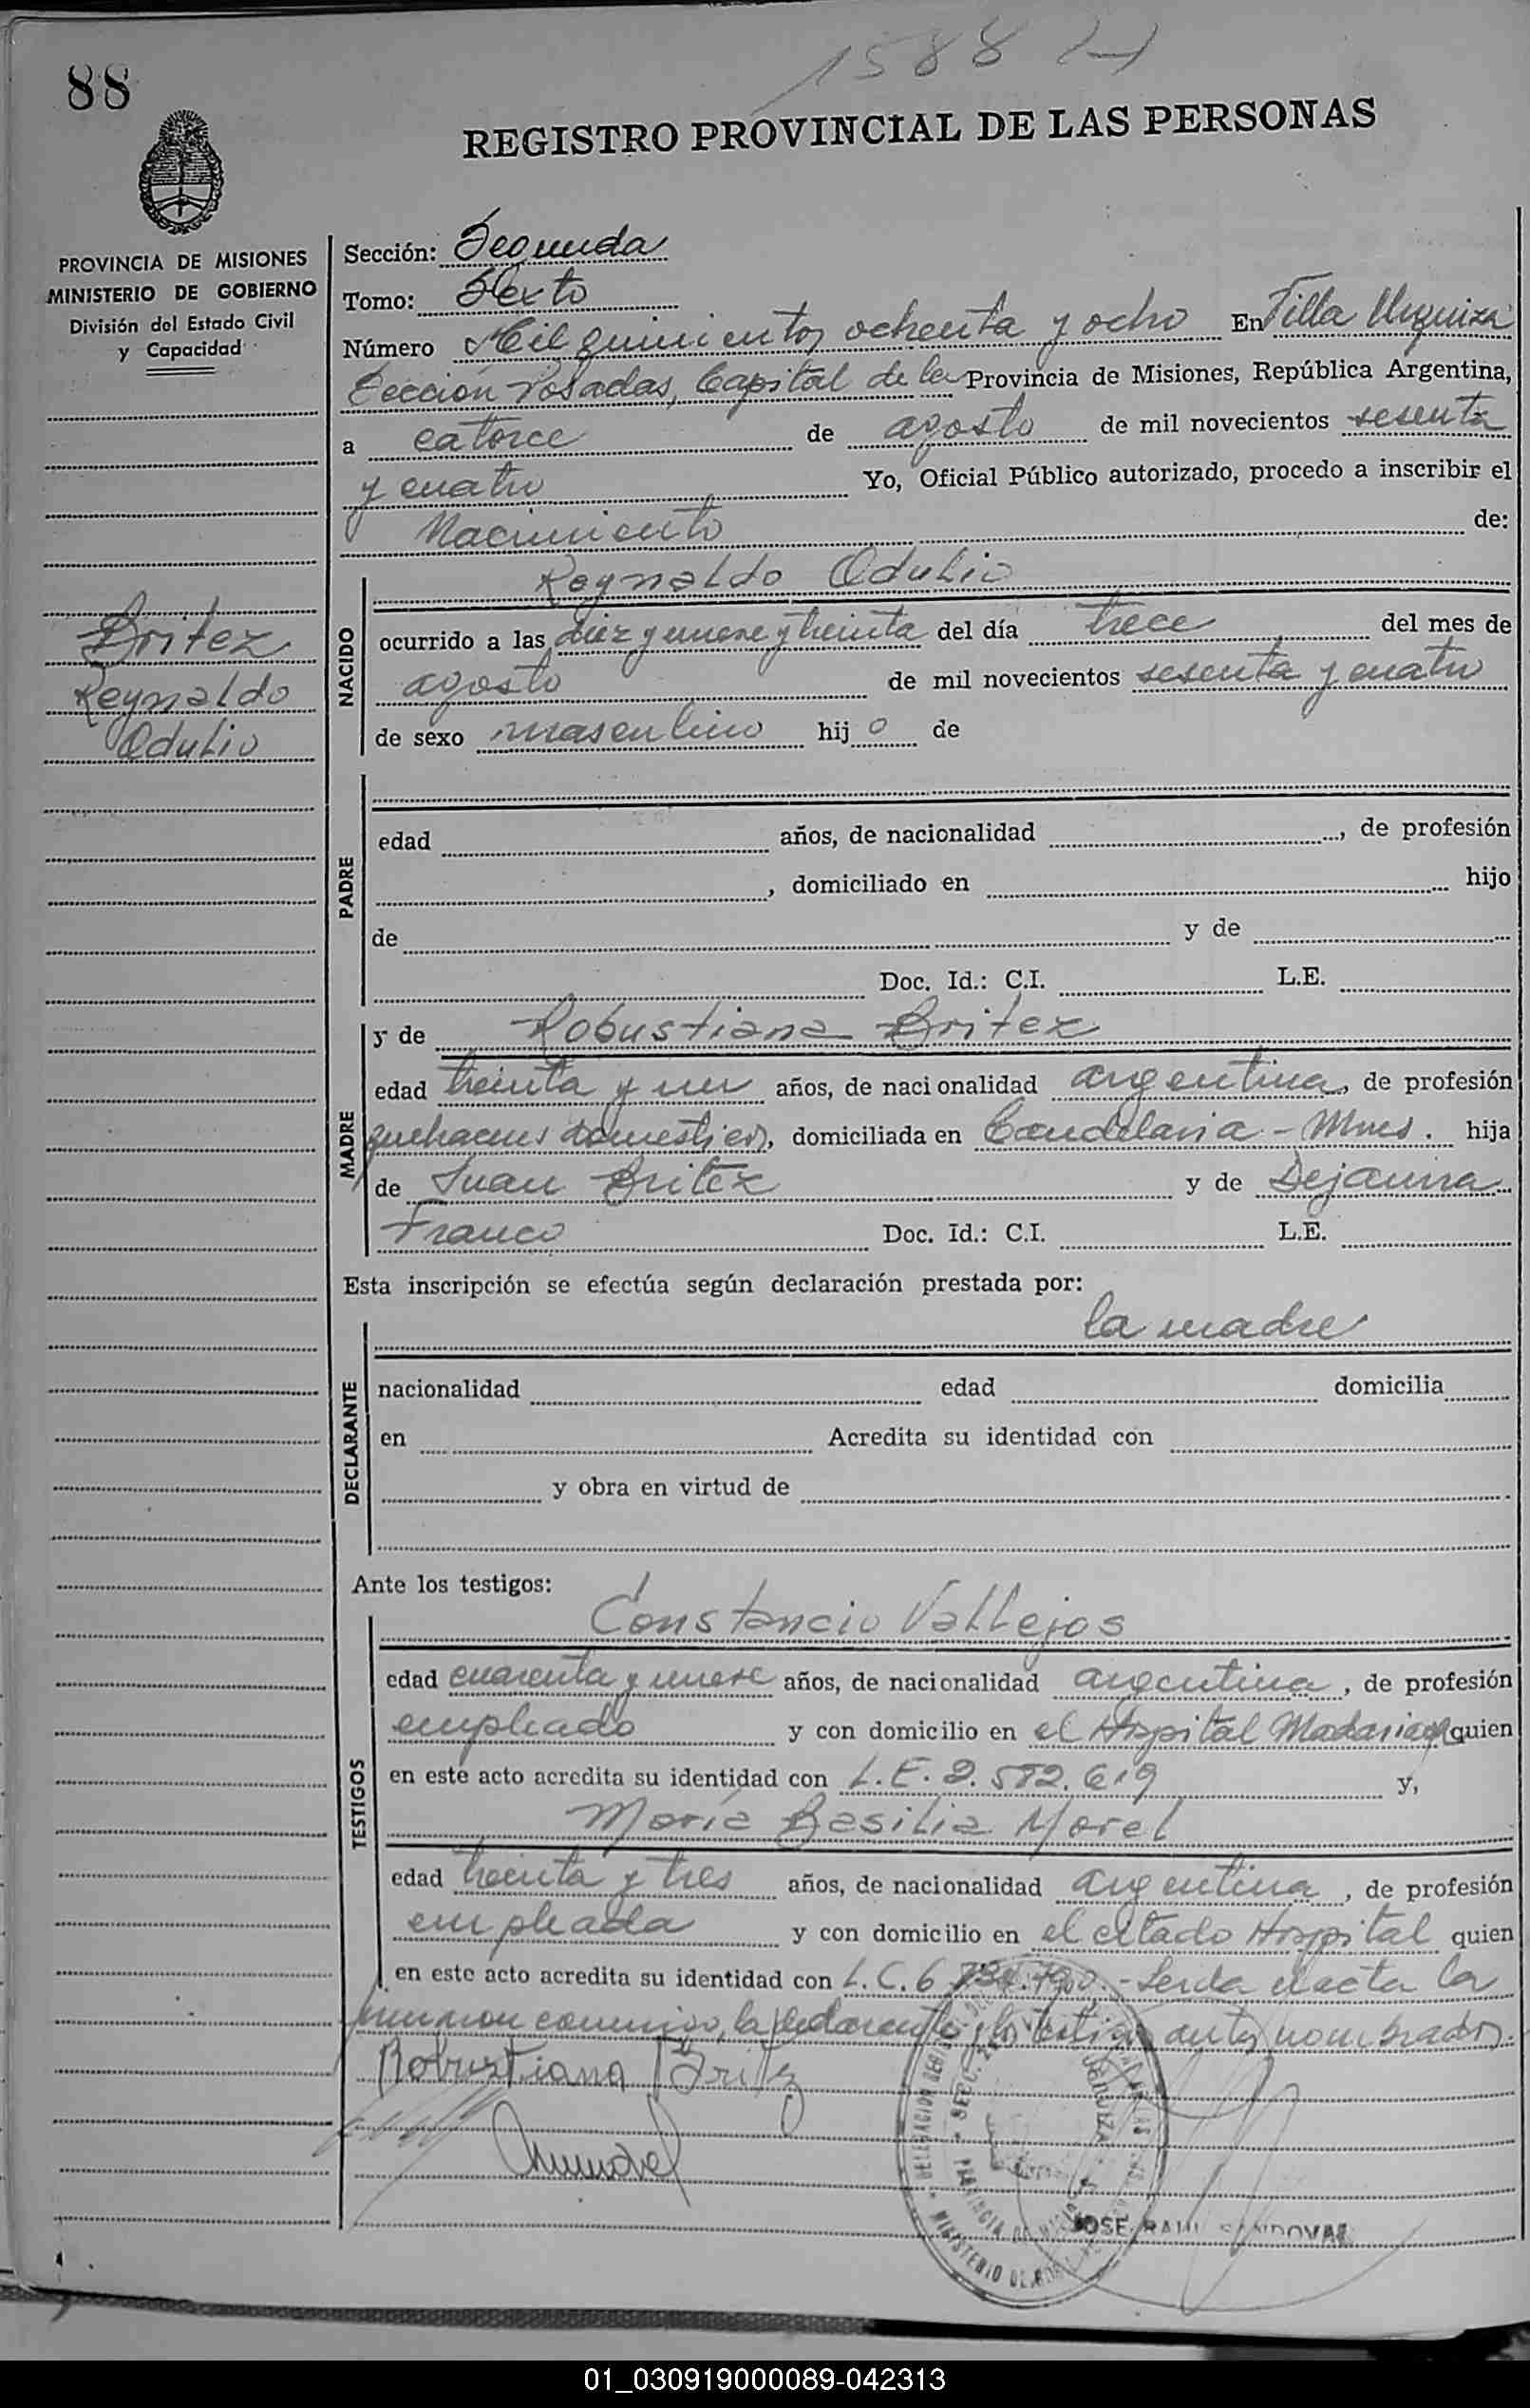 1588
88
REGISTRO PROVINCIAL DE LAS PERSONAS
PROVINCIA DE MISIONES
MINISTERIO DE GOBIERNO
División del Estado Civil
y Capacidad
Britez
Reynaldo
Odulio
Sección: Segunda
Tomo: Sexto
Número Mil quinientos ochenta y ocho En Villa Urquiza
Sección Posadas, Capital de la Provincia de Misiones, República Argentina,
a catorce de agosto de mil novecientos sesenta
y cuatro Yo, Oficial Público autorizado, procedo a inscribir el
Nacimiento de:
NACIDO
Reynaldo Odulio
ocurrido a las diez y nueve y treinta del día trece del mes de
agosto de mil novecientos sesenta y cuatro
de sexo masculino hijo de
PADRE
edad años, de nacionalidad , de profesión
, domiciliado en hijo
de y de
Doc. Id.: C.I. L.E.
MADRE
y de Robustiana Britez
edad treinta y un años, de nacionalidad argentina, de profesión
quehaceres domesticos, domiciliada en Candelaria - Mnes. hija
de Juan Britez y de Dejanira
Franco Doc. Id.: C.I. L.E.
Esta inscripción se efectúa según declaración prestada por:
DECLARANTE
la madre
nacionalidad edad domicilia
en Acredita su identidad con
y obra en virtud de
Ante los testigos:
TESTIGOS
Constancio Vallejos
edad cuarenta y nueve años, de nacionalidad argentina, de profesión
empleado y con domicilio en el Hospital Madariaga quien
en este acto acredita su identidad con L.E. 2.582.619 y,
María Basilia Morel
edad treinta y tres años, de nacionalidad argentina, de profesión
empleada y con domicilio en el citado Hospital quien
en este acto acredita su identidad con L.C. 6 - Leida el acta la
firmaron conmigo, la declarante y los testigos antes nombrados.
Robustiana Britez
JOSE RAUL SANDOVAL
01_030919000089-042313